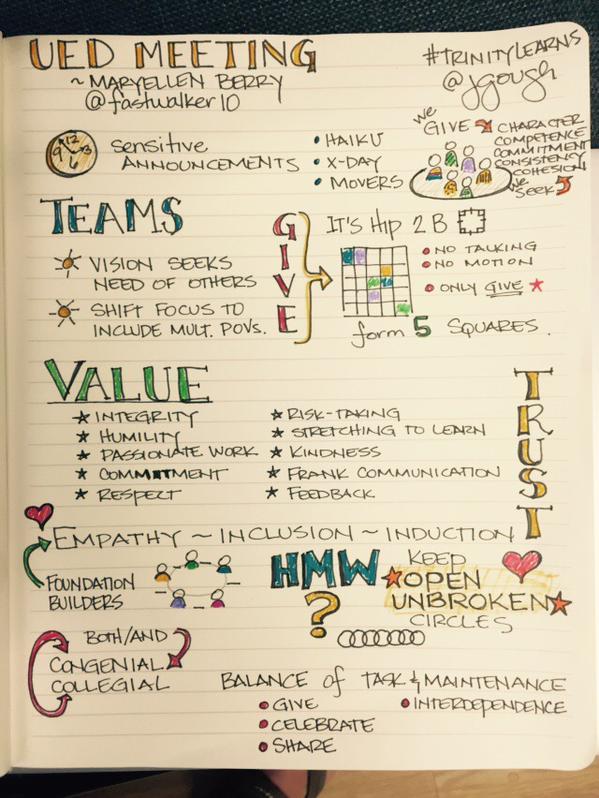 UED MEETING
~ MARYELLEN BERRY
@fastwalker10
#TRINITYLEARNS
@jgough
12
9 3
6
Sensitive
ANNOUNCEMENTS
• HAIKU
• X-DAY
• MOVERS
We
GIVE
CHARACTER
COMPETENCE
COMMITMENT
CONSISTENCY
COHESION
We
SEEK
TEAMS
VISION SEEKS
NEED OF OTHERS
SHIFT FOCUS TO
INCLUDE MULT. POVS.
GIVE
IT'S HIP 2 B
• NO TALKING
• NO MOTION
• ONLY GIVE ★
form 5 SQUARES.
VALUE
★ INTEGRITY
★ HUMILITY
★ PASSIONATE WORK
★ COMMITMENT
★ RESPECT
★ RISK-TAKING
★ STRETCHING TO LEARN
★ KINDNESS
★ FRANK COMMUNICATION
★ FEEDBACK
TRUST
EMPATHY ~ INCLUSION ~ INDUCTION
FOUNDATION
BUILDERS
HMW
?
KEEP
OPEN
UNBROKEN
CIRCLES
BOTH/AND
CONGENIAL
COLLEGIAL
BALANCE of TASK & MAINTENANCE
• GIVE
• CELEBRATE
• SHARE
• INTERDEPENDENCE